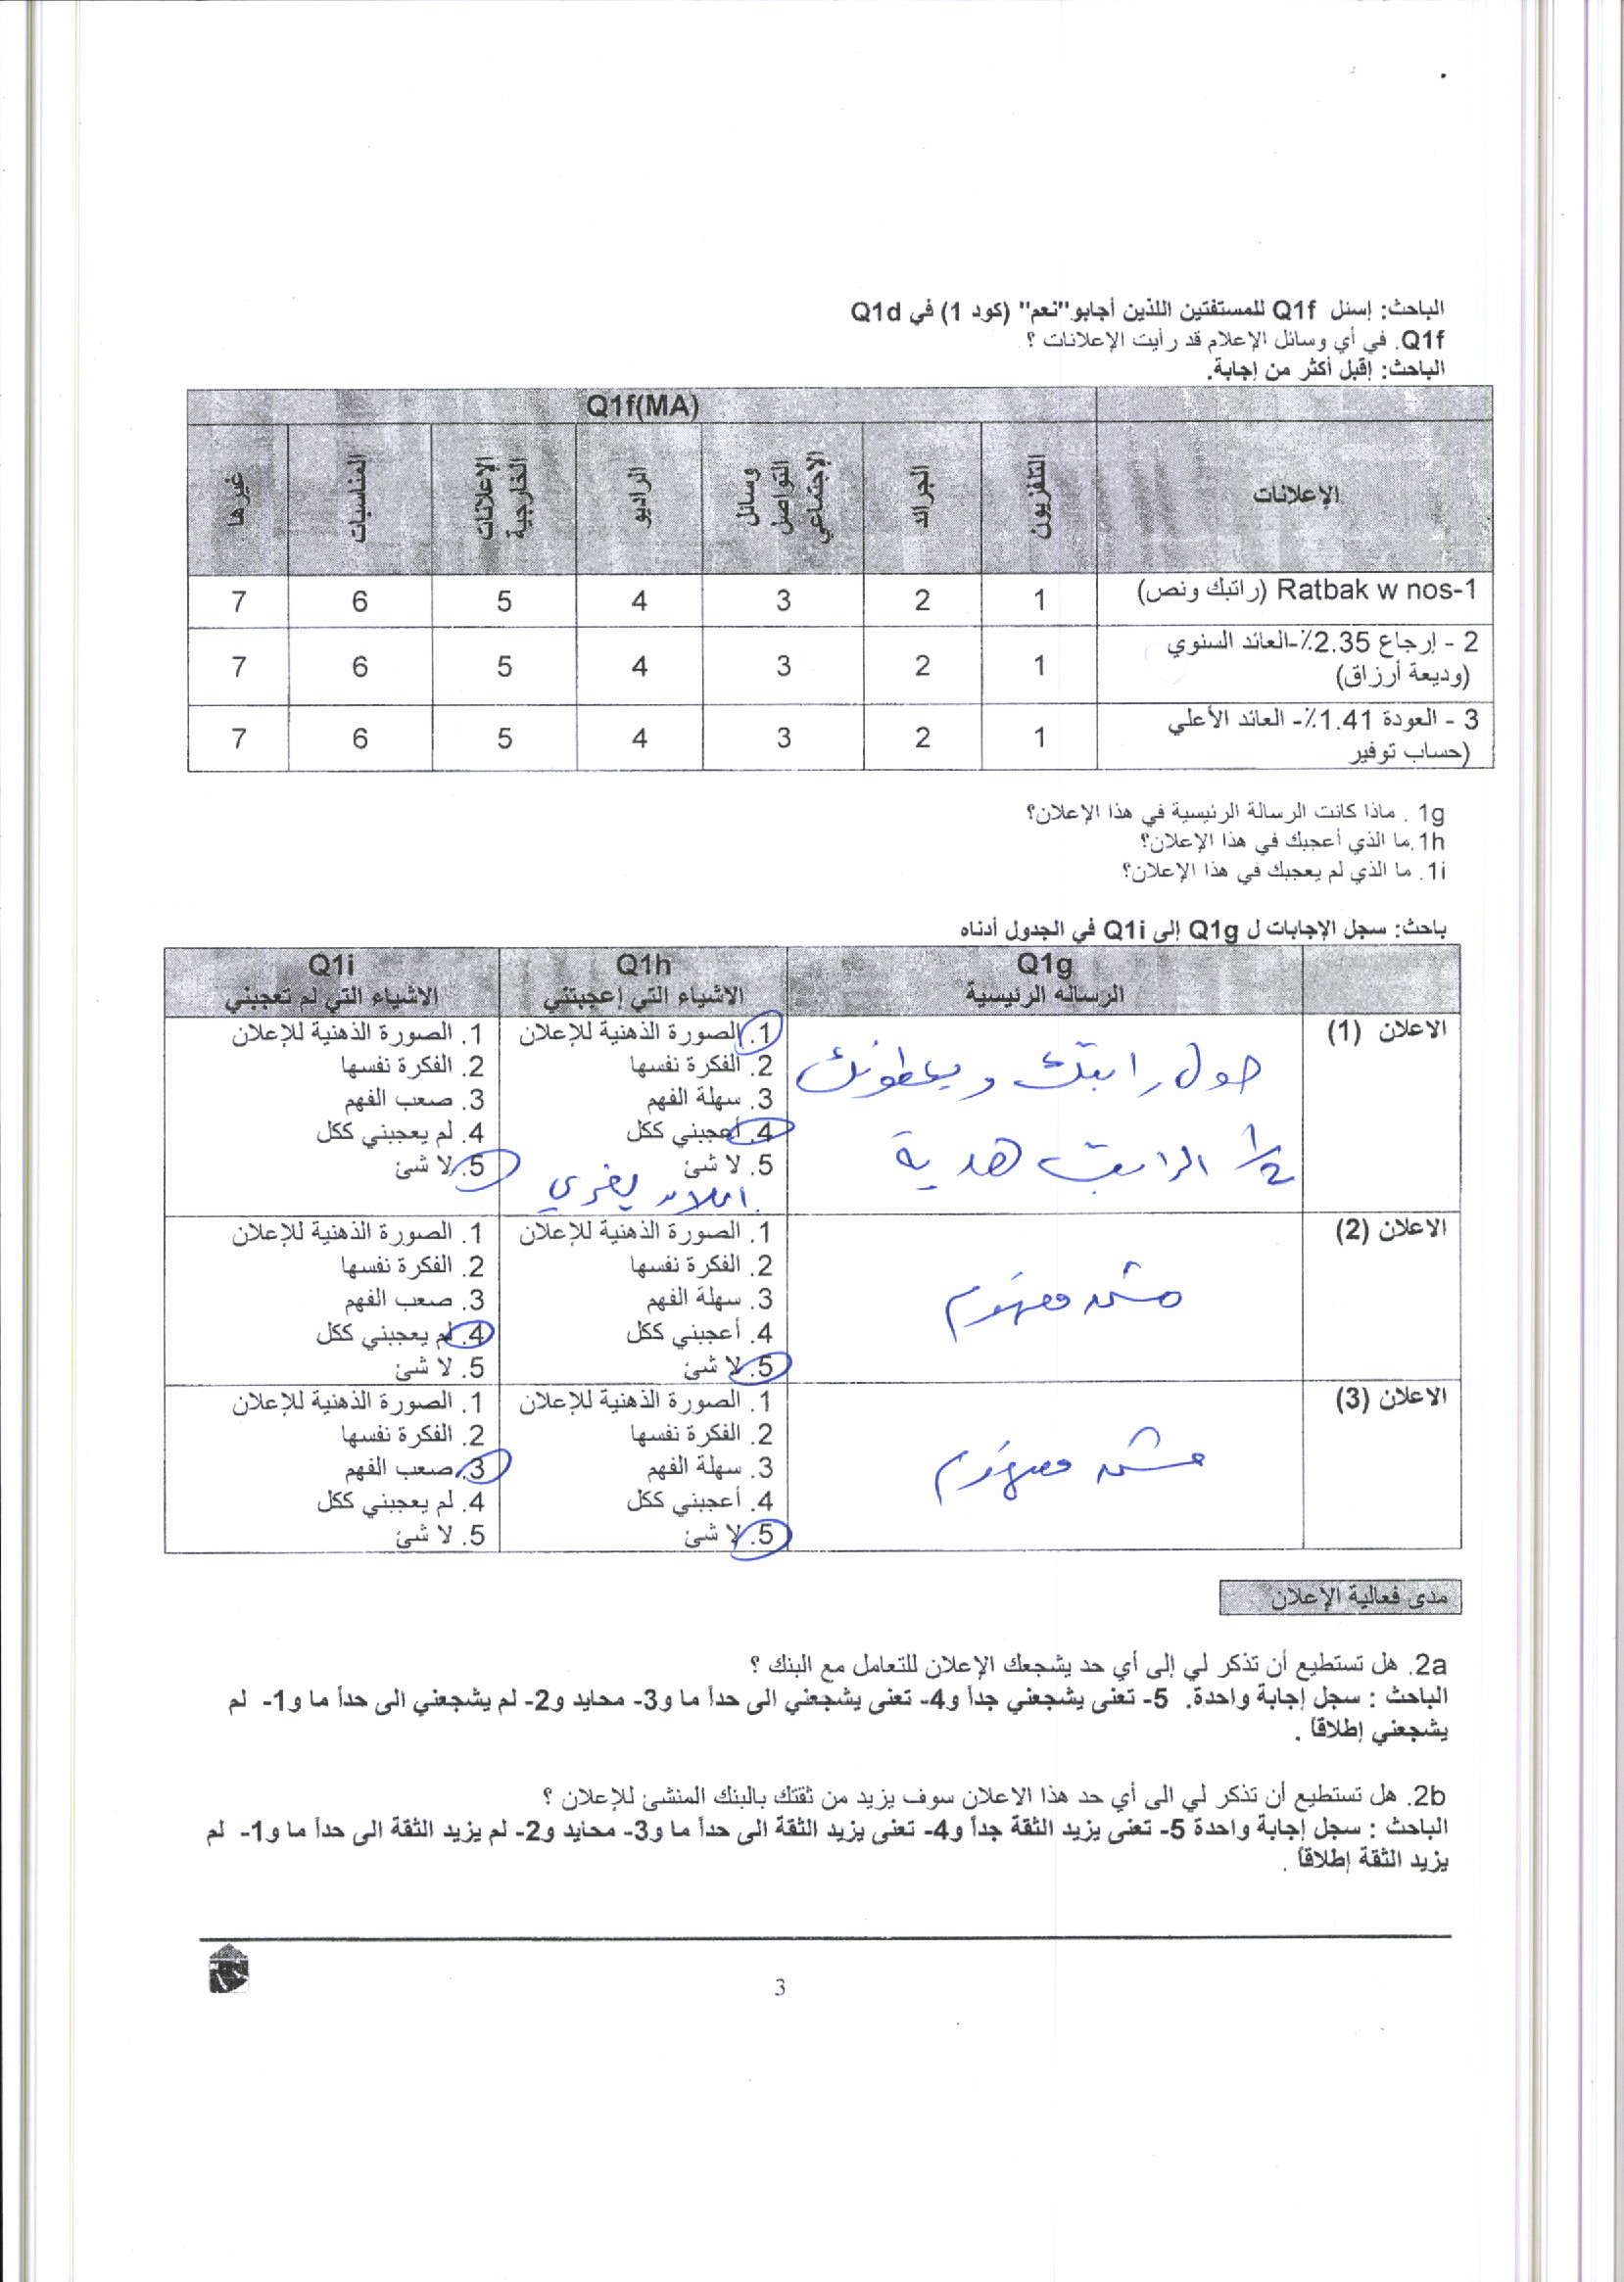 الباحث: إسئل Q1f للمستفتين اللذين أجابو"نعم" (كود 1) في Q1d
Q1f. في أي وسائل الإعلام قد رأيت الإعلانات ؟
الباحث: إقبل أكثر من إجابة.
Q1f(MA)
الإعلانات التلفزيون الجرائد وسائل التواصل الإجتماعي الراديو الإعلانات الخارجية المناسبات غيرها
1-Ratbak w nos (راتبك ونص) 1 2 3 4 5 6 7
2 - إرجاع 2.35٪-العائد السنوي
(وديعة أرزاق) 1 2 3 4 5 6 7
3 - العودة 1.41٪- العائد الأعلي
(حساب توفير 1 2 3 4 5 6 7
1g . ماذا كانت الرسالة الرئيسية في هذا الإعلان؟
1h.ما الذي أعجبك في هذا الإعلان؟
1i. ما الذي لم يعجبك في هذا الإعلان؟
باحث: سجل الإجابات ل Q1g إلى Q1i في الجدول أدناه
Q1g Q1h Q1i
الرسالة الرئيسية الاشياء التي إعجبتني الاشياء التي لم تعجبني
الاعلان (1)
حول راتبك ويعطونك
1/2 الراتب هدية
1. الصورة الذهنية للإعلان
2. الفكرة نفسها
3. سهلة الفهم
4. أعجبني ككل
5. لا شئ
اعلان يغري
1. الصورة الذهنية للإعلان
2. الفكرة نفسها
3. صعب الفهم
4. لم يعجبني ككل
5. لا شئ
الاعلان (2)
مش مفهوم
1. الصورة الذهنية للإعلان
2. الفكرة نفسها
3. سهلة الفهم
4. أعجبني ككل
5. لا شئ
1. الصورة الذهنية للإعلان
2. الفكرة نفسها
3. صعب الفهم
4. لم يعجبني ككل
5. لا شئ
الاعلان (3)
مش مفهوم
1. الصورة الذهنية للإعلان
2. الفكرة نفسها
3. سهلة الفهم
4. أعجبني ككل
5. لا شئ
1. الصورة الذهنية للإعلان
2. الفكرة نفسها
3. صعب الفهم
4. لم يعجبني ككل
5. لا شئ
مدى فعالية الإعلان
2a. هل تستطيع أن تذكر لي إلى أي حد يشجعك الإعلان للتعامل مع البنك ؟
الباحث : سجل إجابة واحدة. 5- تعنى يشجعني جداً و4- تعنى يشجعني الى حداً ما و3- محايد و2- لم يشجعني الى حداً ما و1- لم
يشجعني إطلاقاً .
2b. هل تستطيع أن تذكر لي الى أي حد هذا الاعلان سوف يزيد من ثقتك بالبنك المنشئ للإعلان ؟
الباحث : سجل إجابة واحدة 5- تعنى يزيد الثقة جداً و4- تعنى يزيد الثقة الى حداً ما و3- محايد و2- لم يزيد الثقة الى حداً ما و1- لم
يزيد الثقة إطلاقاً .
3